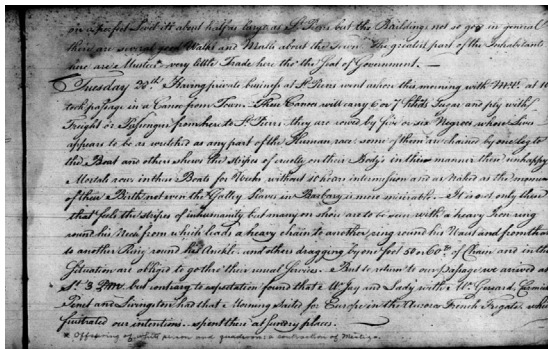 on a perfect Level its about half as large as St. Piers but the Buildings not so gay in general
there are several good Walks and Malls about the Town. The greatest part of the Inhabitants
are Mustees very little Trade here tho' the Seat of Government. —
Tuesday 28th Having private business at St. Piers went when this morning with at 10
took passage in a Canoe from Town — These Canoes will carry 6 or 7 Sugar and ply with
Freight or Passengers from here to St. Piers they are rowed by five or six Negroes, whose Lives
appear to be as wretched as any part of the Human race some of them are chained by one leg to
the Boat and others shew the stripes of cruelty on their Body's in this manner these unhappy
Mortals row in these Boats for Weeks without scarce intermission and as Naked as the moment
of their Birth, not even the Galley Slaves in Barbary is more miserable. — It is not only these
that feels the stripes of inhumanity but many on shore are to be seen with a heavy Iron ring
round his Neck from which leads a heavy chain to another ring round his Waist and from that
to another Ring round his Anckle, and others dragging by one foot 50 or 60lb of Chain and in this
Situation are obliged to go thro' their usual Service. But to return to our passage we arrived at
St. 3 P.M. but contrary to expectation found that Mr. Jay and Lady with Mr. Gerard, Carmical
Penet and Livingston had that Morning Sailed for Europe in the Aurora French Frigate which
frustrated our intentions. spent the at Lowery places.
* Offspring of white person and quadroon; a contraction of Mestizo.